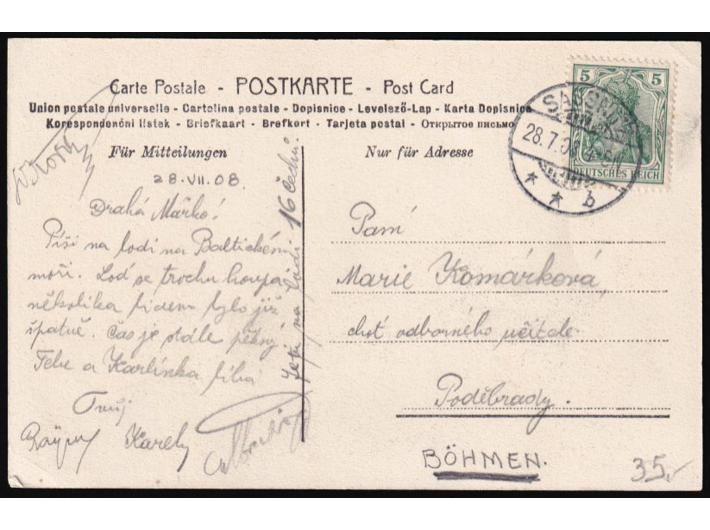 Carte Postale - POSTKARTE - Post Card
Union postale universelle - Cartolina postale - Dopisnice - Levelező-Lap - Karta Dopisnica
Korespondenční lístek - Briefkaart - Brefkort - Tarjeta postal - Открытое письмо
Für Mitteilungen
28.VII.08.
Drahá Mařko!
Píši na lodi na Baltickém
moři. Loď se trochu houpa
několika lidem bylo již
špatně. Čas je stále pěkný
Tebe a Karlínka líbá
Tvůj
Karel
Jetí na lodi 16 Čechů.
Nur für Adresse
5 5
DEUTSCHES REICH
SASSNITZ
28.7.08
* * b
Paní
Marie Komárková,
choť odborného učitele
Poděbrady.
BÖHMEN.
35.-